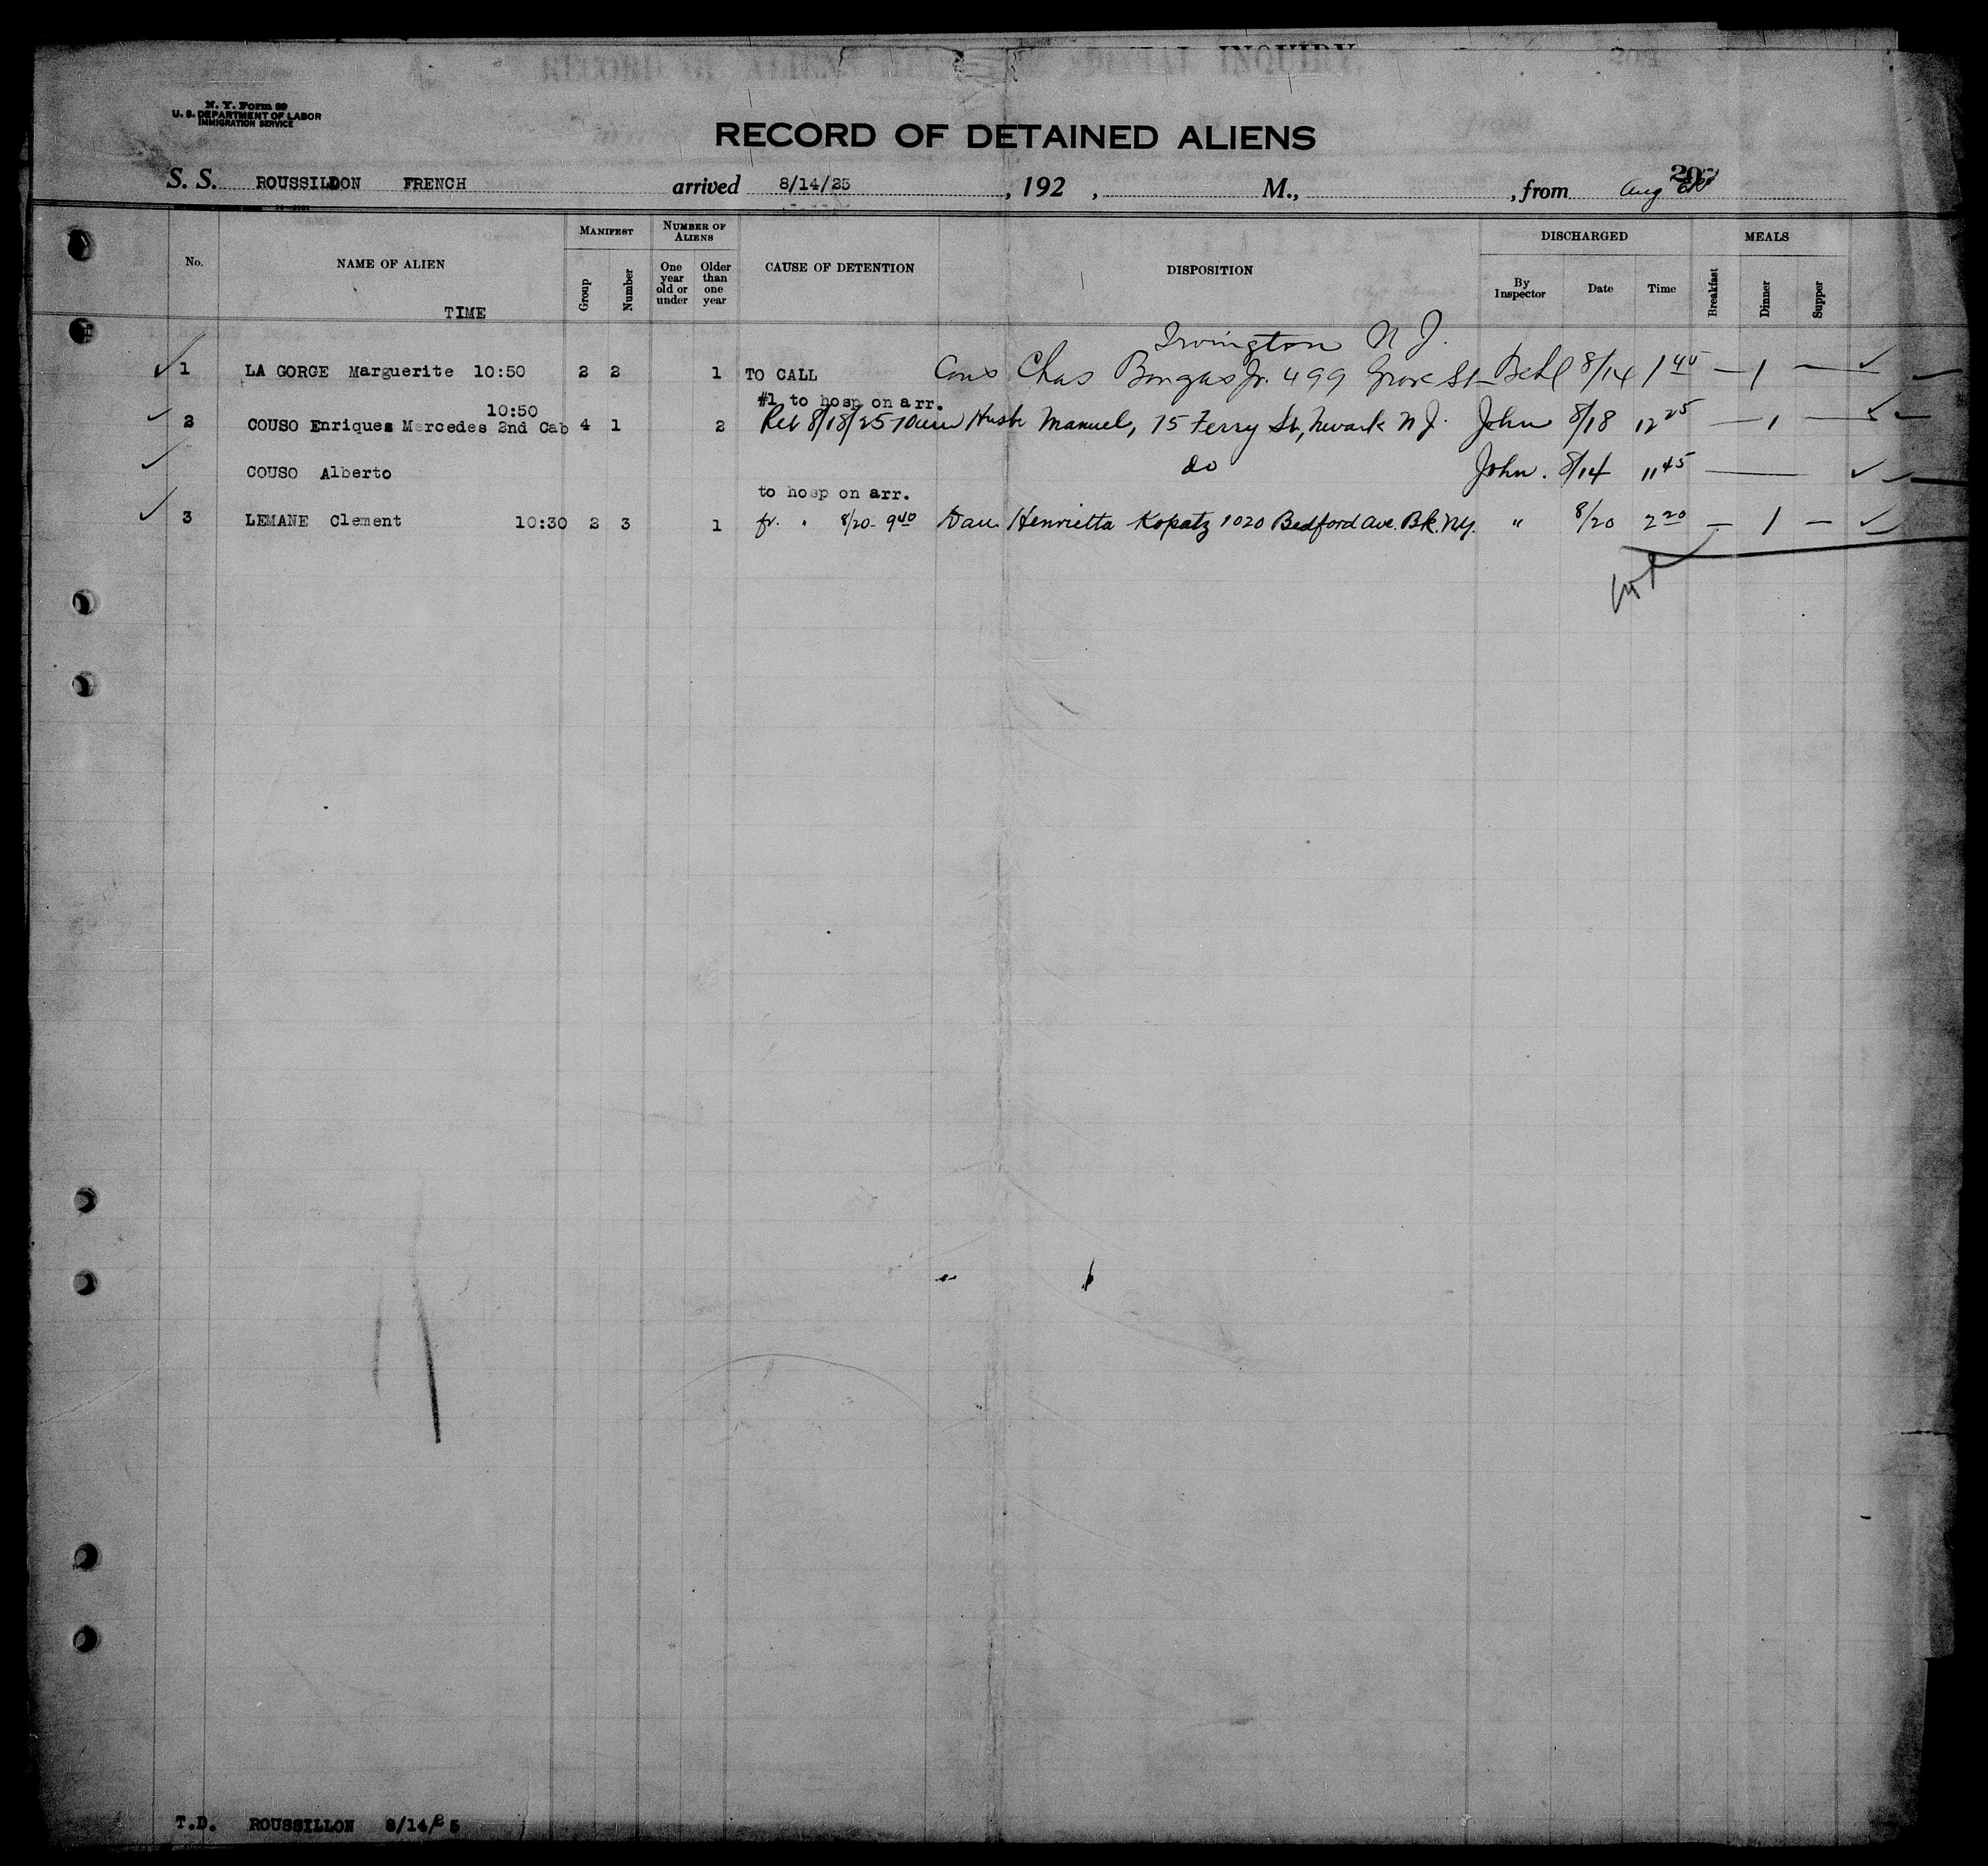 N. Y. Form 89
U. S. DEPARTMENT OF LABOR
IMMIGRATION SERVICE
RECORD OF DETAINED ALIENS
S. S. ROUSSILDON FRENCH arrived 8/14/25, 192 , M., , from Aug
No. NAME OF ALIEN MANIFEST NUMBER OF ALIENS CAUSE OF DETENTION DISPOSITION DISCHARGED MEALS
TIME Group Number One year old or under Older than one year By Inspector Date Time Breakfast Dinner Supper
Irvington N J.
1 LA GORGE Marguerite 10:50 2 2 1 TO CALL Cous Chas Jr. 499 Grove St 8/14 1 40 — 1 —
10:50 #1 to hosp on arr.
2 COUSO Enriques Mercedes 2nd Cab 4 1 2 8/18/25 Husb Manuel, 15 Ferry St, Newark N J. John 8/18 12 25 — 1 —
COUSO Alberto do John. 8/14 11 45
to hosp on arr.
3 LEMANE Clement 10:30 2 3 1 fr. " 8/20 - 9 40 Dau Henrietta Kopatz 1020 Bedford Ave. Bk. N.Y. " 8/20 2 20 — 1 —
T.D. ROUSSILLON 8/14/25